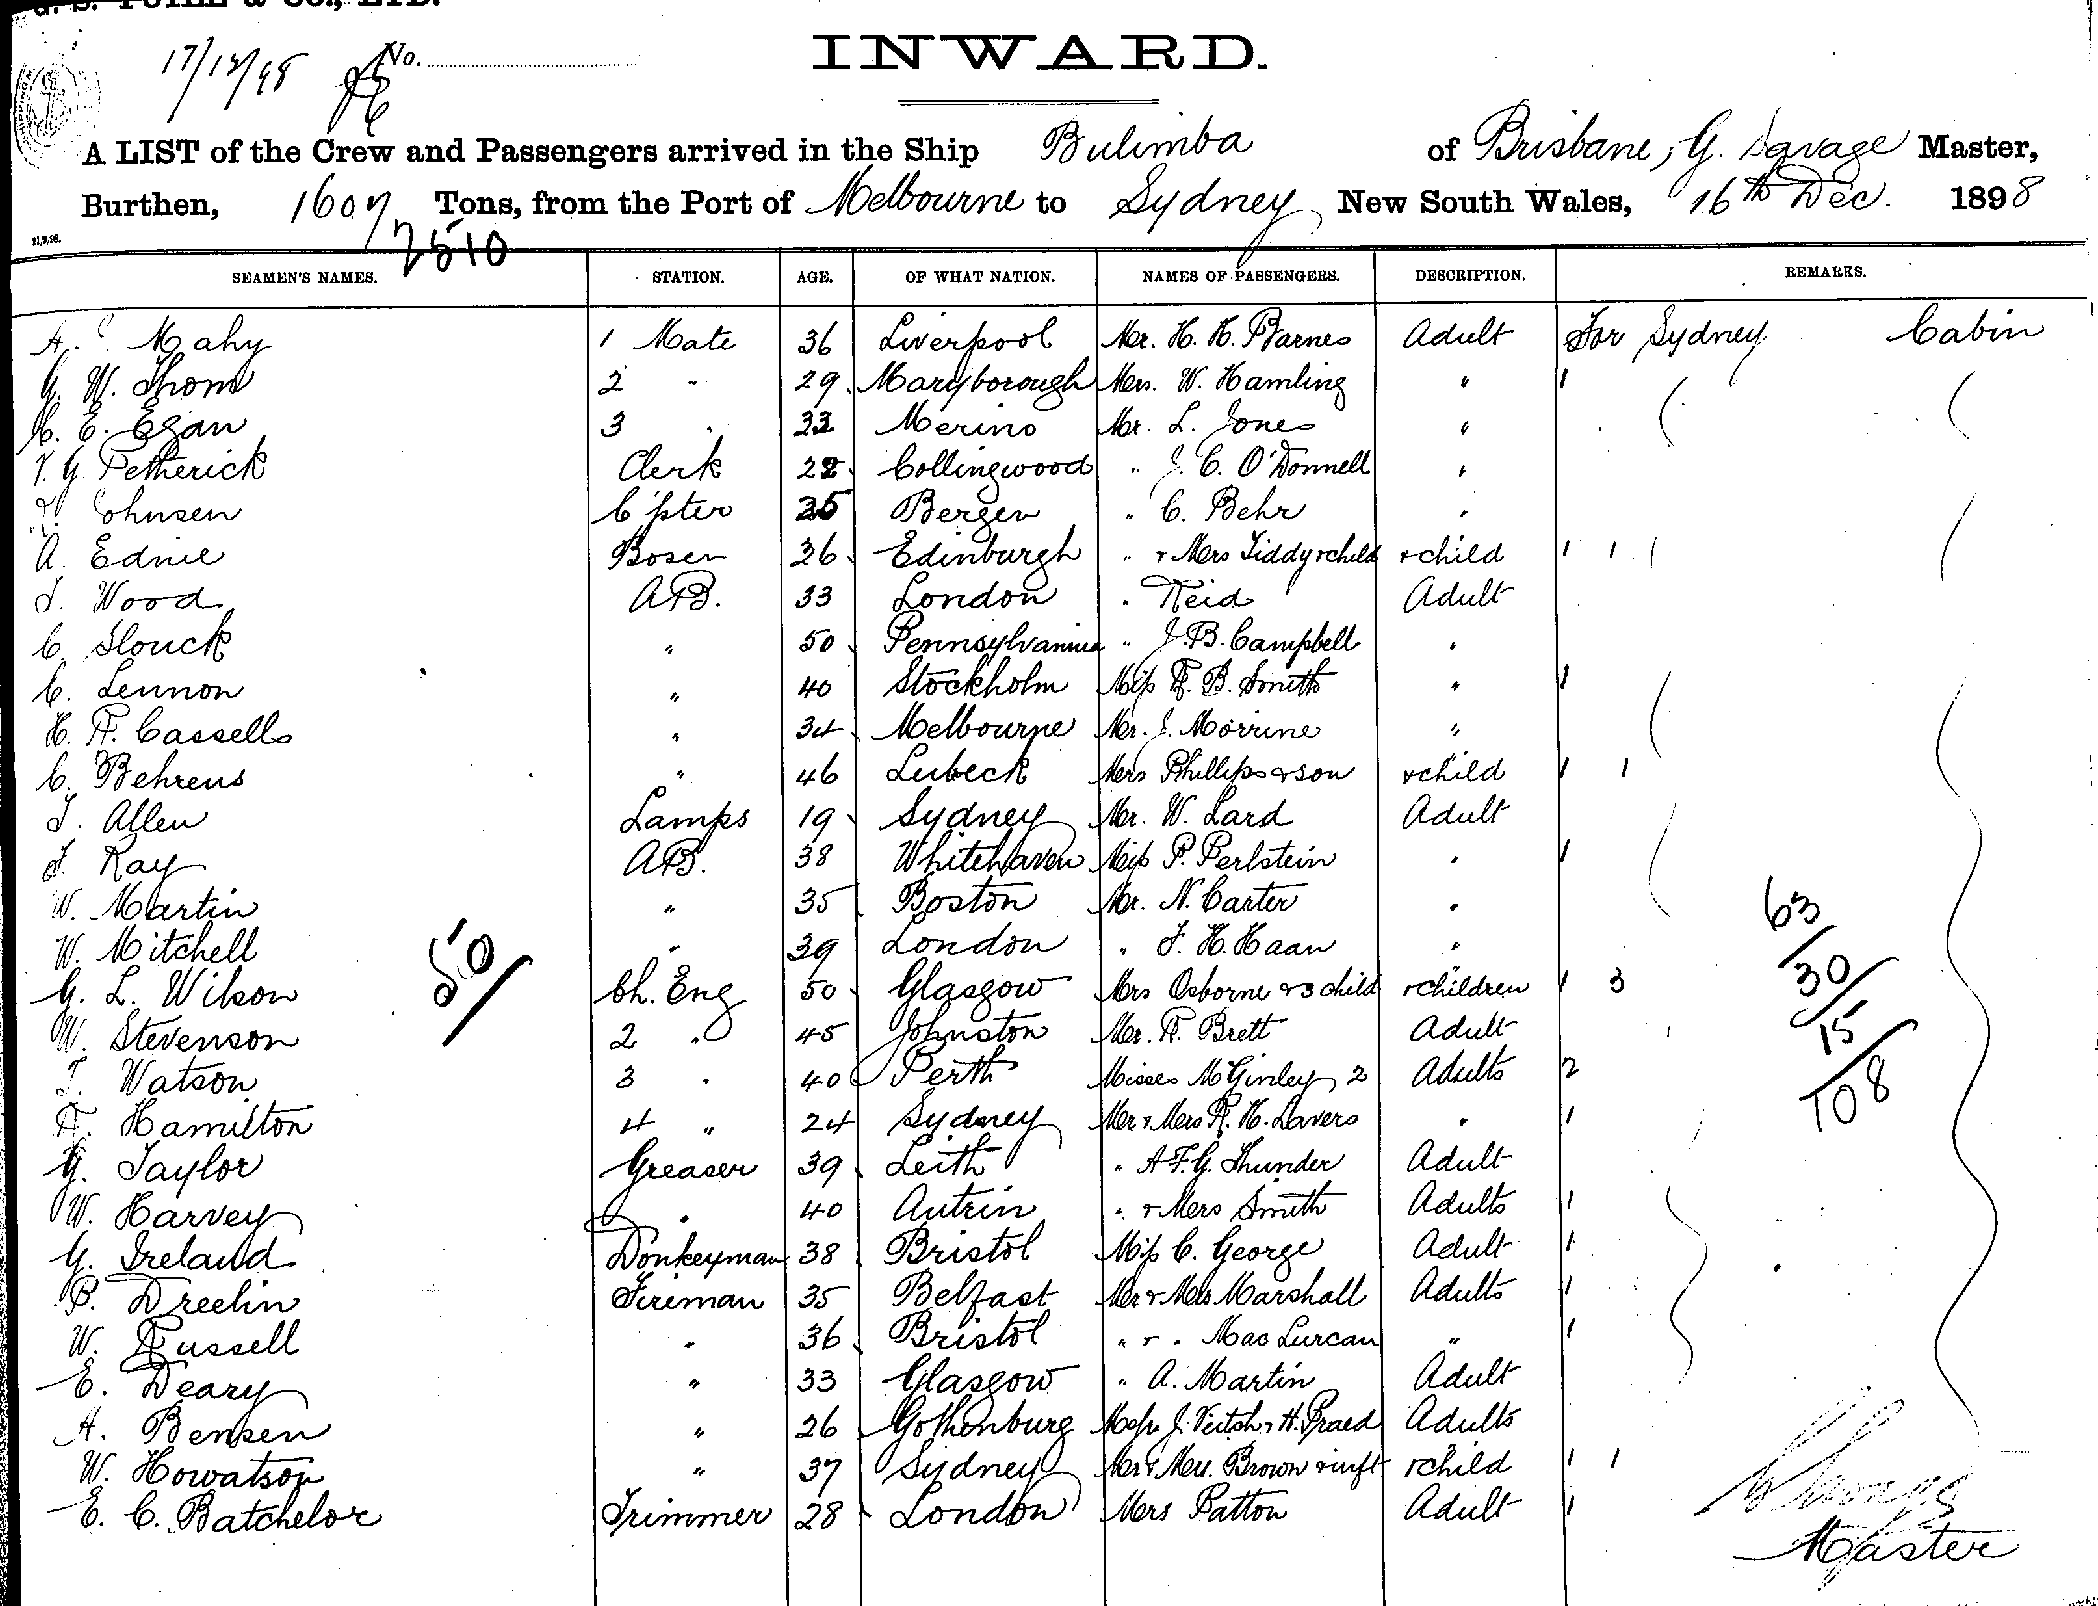 17/12/98 No.
INWARD.
A LIST of the Crew and Passengers arrived in the Ship Bulimba of Brisbane, G. Savage Master,
Burthen, 1607 Tons, from the Port of Melbourne to Sydney, New South Wales, 16th Dec. 1898
2510
SEAMEN'S NAMES. STATION. AGE. OF WHAT NATION. NAMES OF PASSENGERS. DESCRIPTION. REMARKS.
A. Mahy 1 Mate 36 Liverpool Mr. H. H. Barnes Adult For Sydney Cabin
G. W. Thom 2 " 29 Maryborough Mrs. W. Hamling " 1
C. E. Egan 3 " Merino Mr. L. Jones "
G. Petherick Clerk 28 Collingwood " J. C. O'Donnell "
Johnsen C'pter Bergen " C. Behr "
A. Ednie Bosen 26 Edinburgh " & Mrs Tiddy & child & child 1 1 1
J. Wood A.B. 33 London " Reid Adult
C. Slouck " 50 Pennsylvannia " J. B. Campbell "
C. Lennon " 40 Stockholm Miss F. B. Smith " 1
H. A. Cassells " 34 Melbourne Mr. J. Morrine "
C. Behrens " 46 Lubeck Mrs Phillips & son & child 1 1
J. Allen Lamps 19 Sydney Mr. W. Lard Adult
J. Ray A.B. 38 Whitehaven Miss P. Perlstein " 1
W. Martin " 35 Boston Mr. N. Carter "
W. Mitchell " 39 London " F. H. Haan "
G. L. Wilson Ch. Eng 50 Glasgow Mrs Osborne & 3 child & children 1 3
W. Stevenson 2 " 45 Johnston Mr. A. Brett Adult
T. Watson 3 " 40 Perth Misses McGinley, 2 Adults 2
A. Hamilton 4 " 24 Sydney Mr & Mrs R. H. Lavers " 1
G. Taylor Greaser 39 Leith " A. F. G. Thunder Adult
W. Harvey " 40 Autrin " & Mrs Smith Adults 1
G. Ireland Donkeyman 38 Bristol Miss C. George Adult 1
B. Dreelin Fireman 35 Belfast Mr & Mrs Marshall Adults 1
W. Russell " 36 Bristol " & " Mac Lurcan " 1
E. Deary " 33 Glasgow " A. Martin Adult
A. Bensen " 26 Gothenburg Messrs J. Veitch & H. Praed Adults
W. Howatson " 37 Sydney Mr & Mrs. Brown & inft & child 1 1
E. C. Batchelor Trimmer 28 London Mrs Patton Adult 1
50/
63/
30/
15/
108
Master